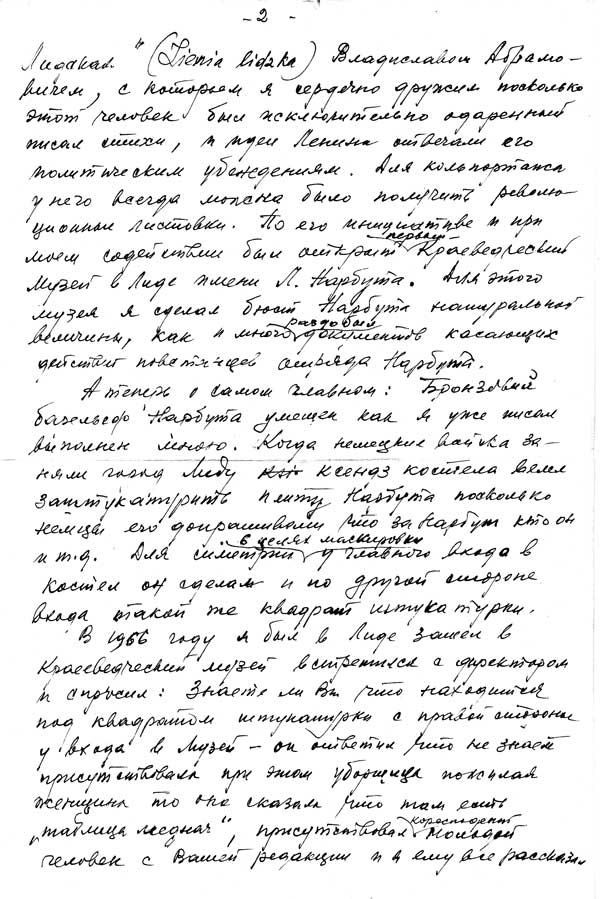 - 2 -
Лидская" (Ziemia lidzka) Владиславом Абрамо-
вичем, с которым я сердечно дружил поскольку
этот человек был исключительно одаренный
писал стихи, и идеи Ленина отвечали его
политическим убеждениям. Для кольпортажа
у него всегда можна было получить револю-
ционные листовки. По его инициативе и при
моем содействии был открыт первый Краеведческий
Музей в Лиде имени Л. Нарбута. Для этого
музея я сделал бюст Нарбута натуральной
величины, как и много раздобыл документов касающих
действий повстанцев отряда Нарбута.
А теперь о самом главном: Бронзовый
барельеф Нарбута умещен как я уже писал
выполнен мною. Когда немецкие войска за-
няли город Лиду ксендз костела велел
заштукатурить плиту Нарбута поскольку
немцы его допрашивали что за Нарбут кто он
и т.д. Для симетрии в целях маскировки у главного входа в
костел он сделал и по другой стороне
входа такой же квадрат штукатурки.
В 1966 году я был в Лиде зашел в
Краеведческий музей встретился с директором
и спросил: Знаете ли Вы что находится
под квадратом штукатурки с правой стороны
у входа в Музей – он ответил что не знает
присутствовала при этом уборщица пожилая
женщина то она сказала что там есть
„таблица медная", присутствовал кореспондент молодой
человек с Вашей редакции и я ему все рассказал